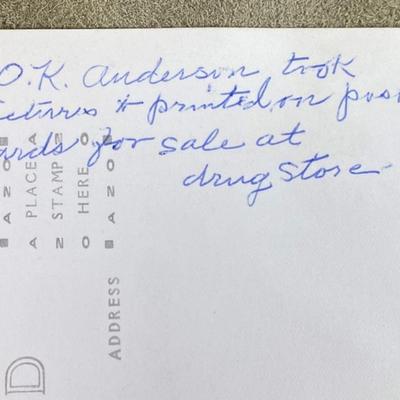 O.K. Anderson took
ictures & printed on pos
ards for sale at
drug store
AZO
PLACE
STAMP
HERE
AZO
ADDRESS
D